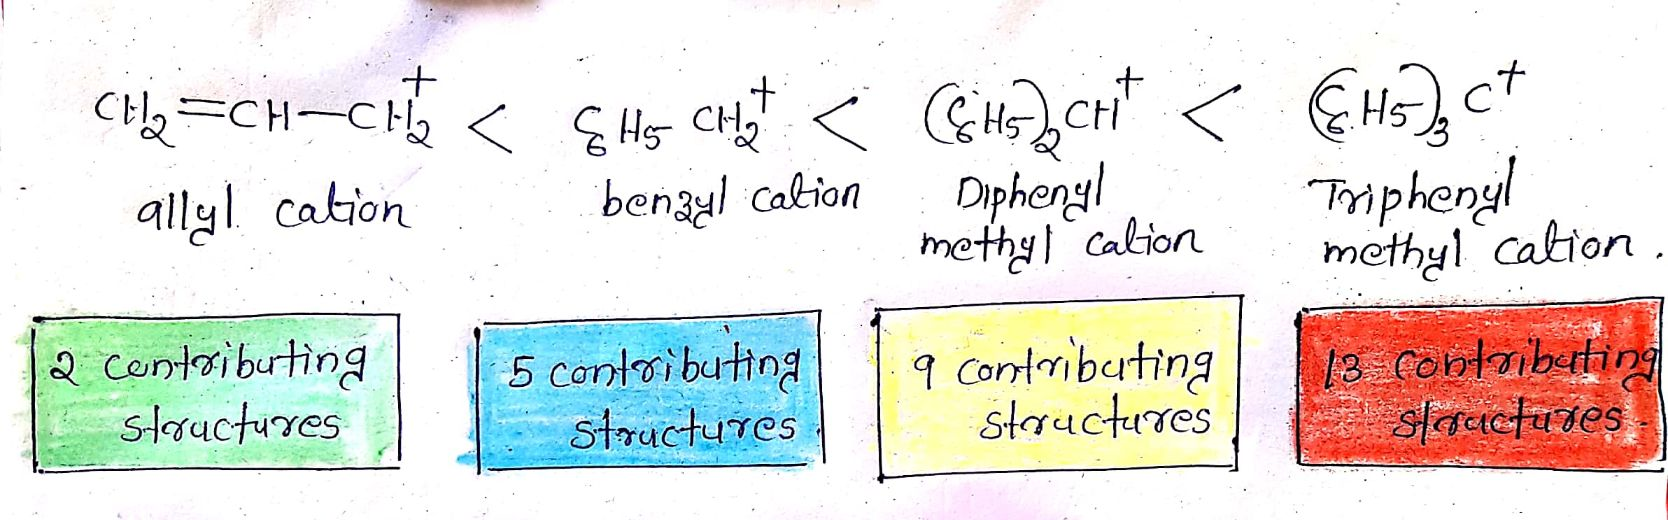 CH₂=CH—CH₂⁺ < C₆H₅ CH₂⁺ < (C₆H₅)₂CH⁺ < (C₆H₅)₃C⁺
allyl cation
benzyl cation
Diphenyl
methyl cation
Triphenyl
methyl cation.
2 contributing
structures
5 contributing
structures.
9 contributing
structures
13 contributing
structures.